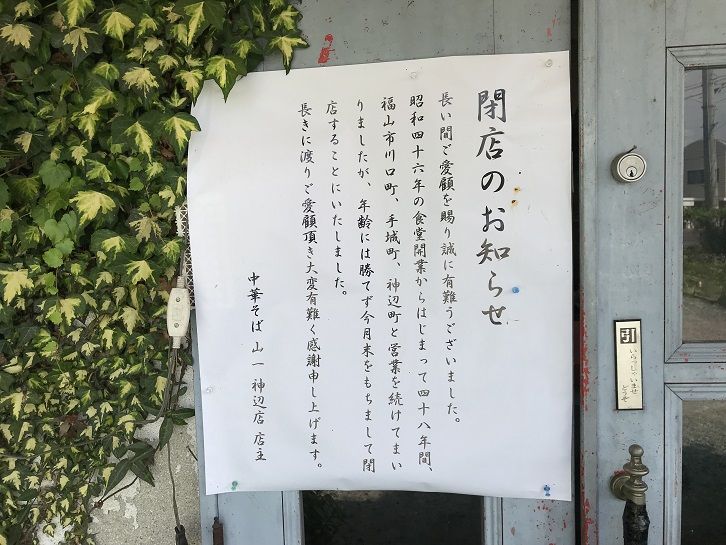 閉店のお知らせ
長い間ご愛顧を賜り誠に有難うございました。
昭和四十六年の食堂開業からはじまって四十八年間、
福山市川口町、手城町、神辺町と営業を続けてまい
りましたが、年齢には勝てず今月末をもちまして閉
店することにいたしました。
長きに渡りご愛顧頂き大変有難く感謝申し上げます。
中華そば 山一 神辺店 店主
引
いらっしゃいませ
どうぞ